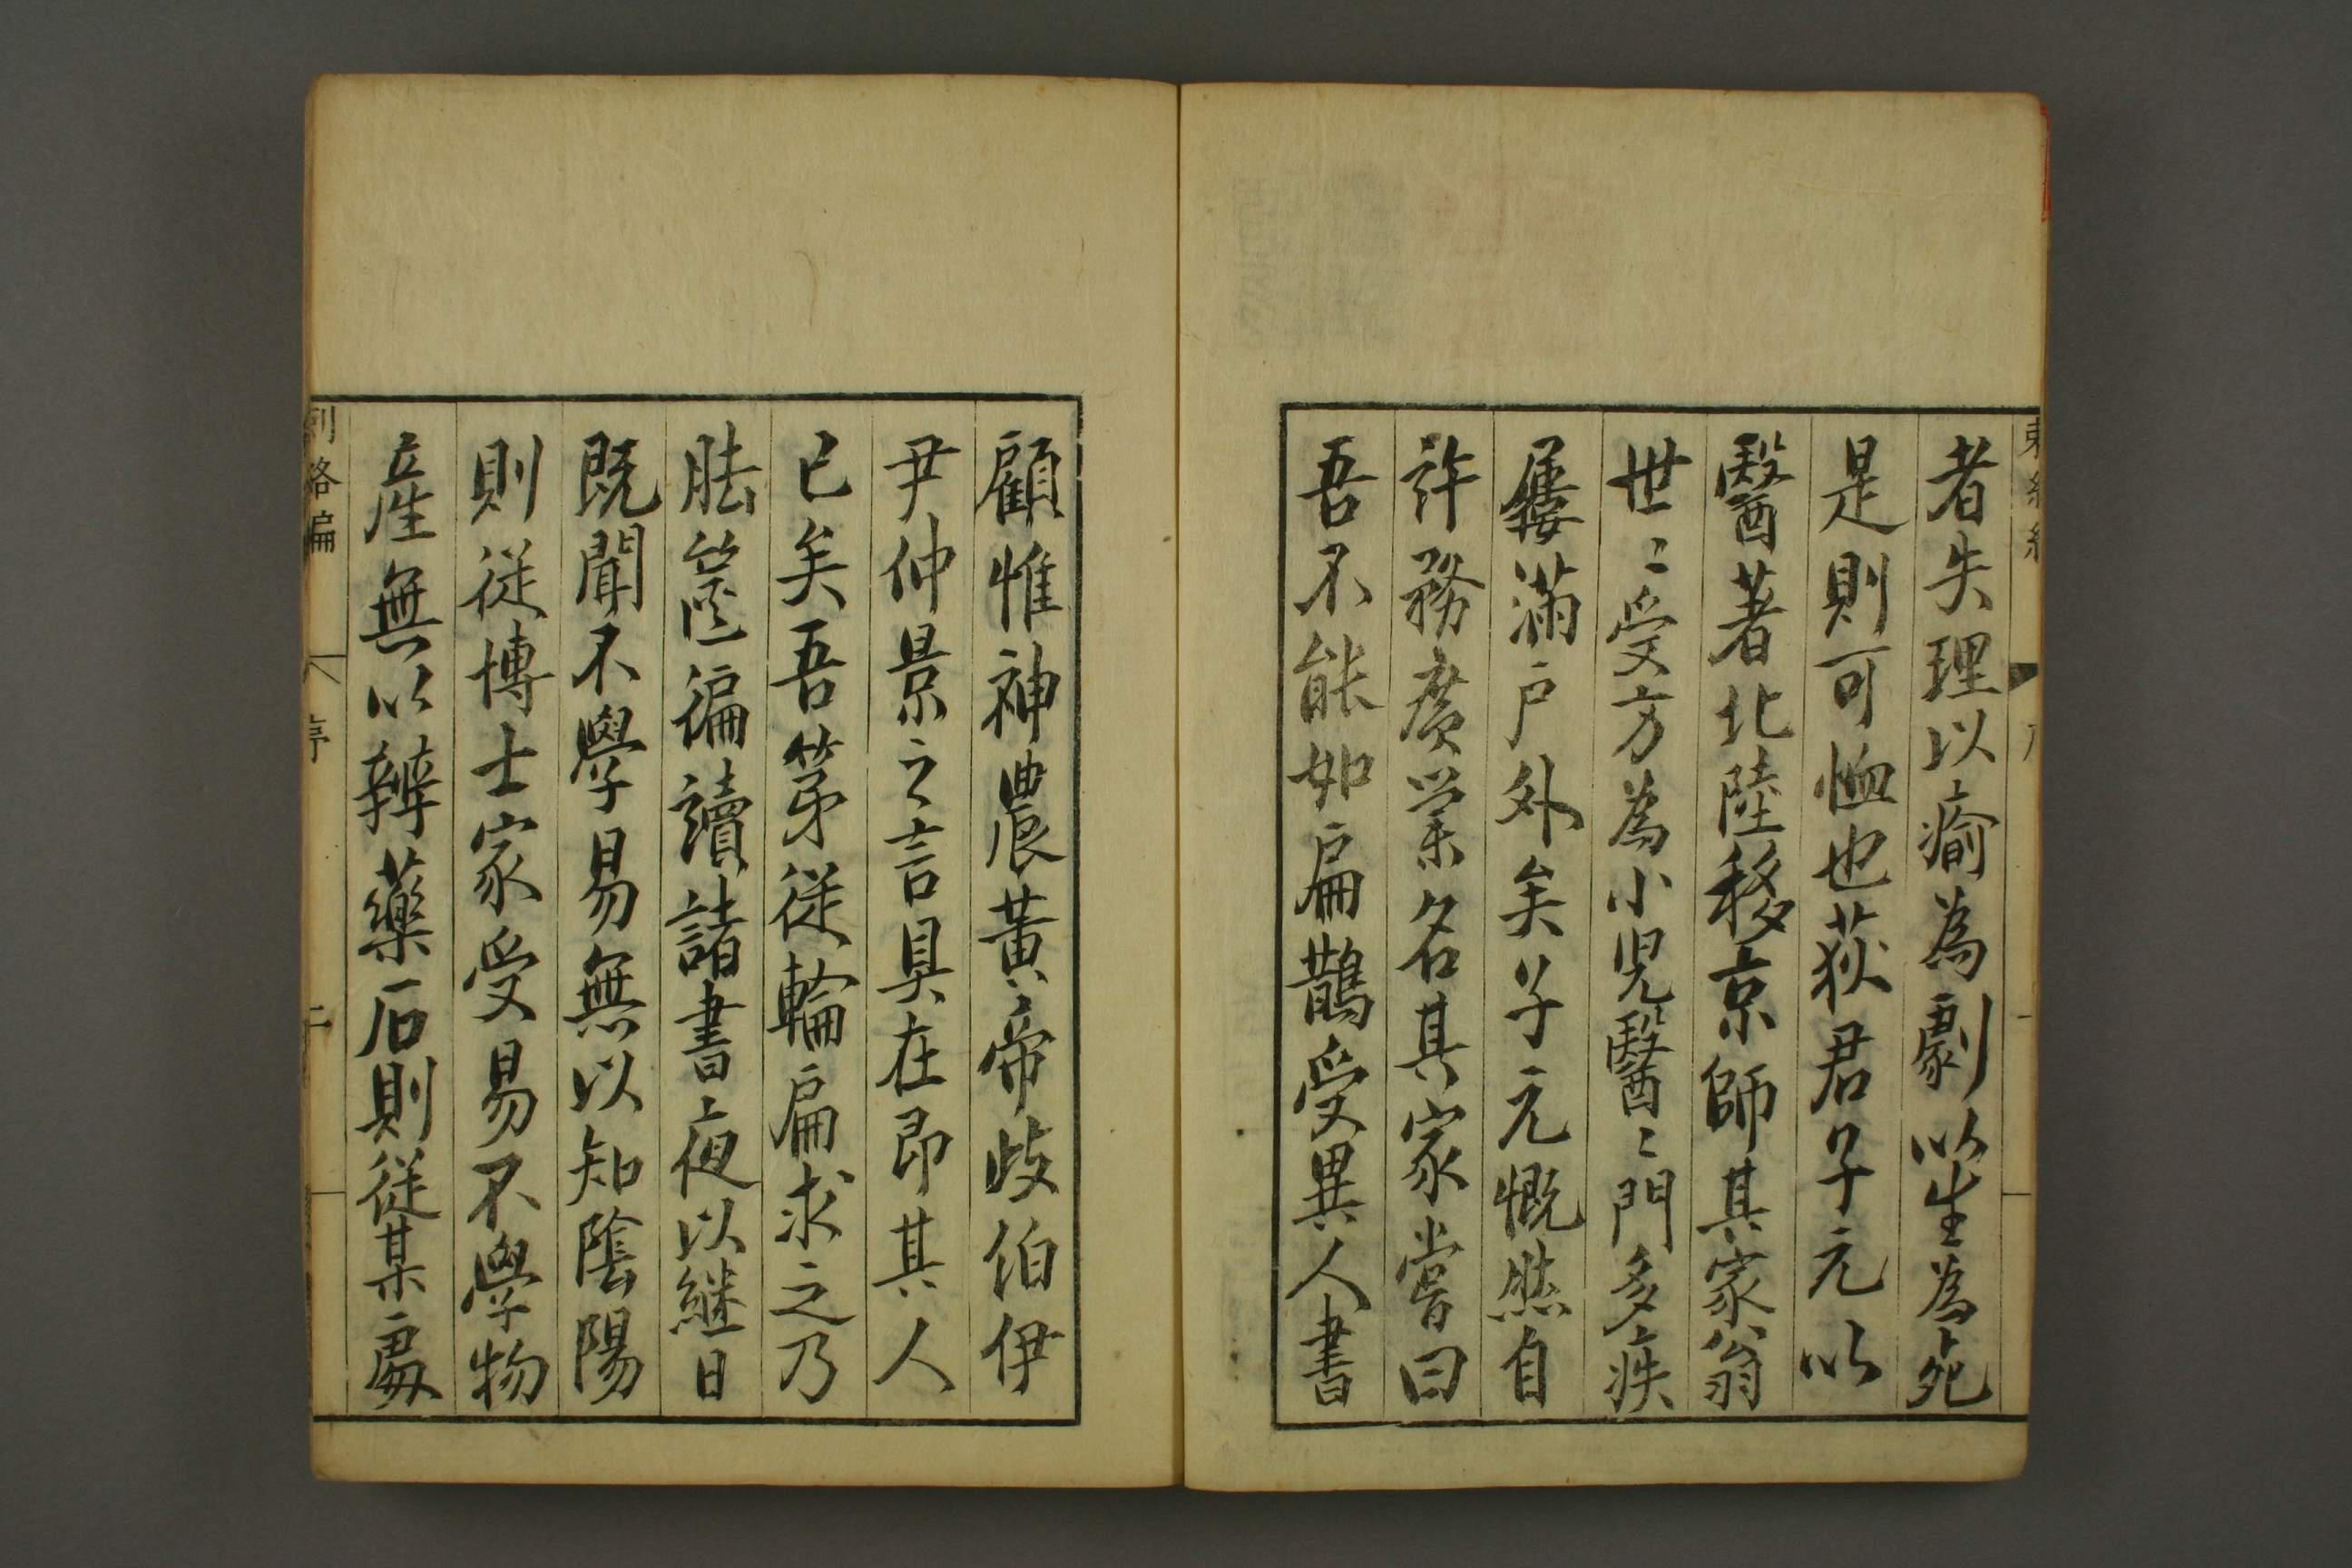 者失理以瘉為劇以生為死
是則可恤也荻君子元以
醫著北陸移京師其家翁
世〻受方為小児醫〻門多疾
屨滿戶外矣子元慨然自
許務廣業名其家嘗曰
吾不能如扁鵲受異人書
顧惟神農黃帝歧伯伊
尹仲景之言具在即其人
已矣吾第從輪扁求之乃
胠篋徧讀諸書夜以継日
既聞不學易無以知陰陽
則從博士家受易不學物
產無以辨藥石則從某處
刺絡編
序
二